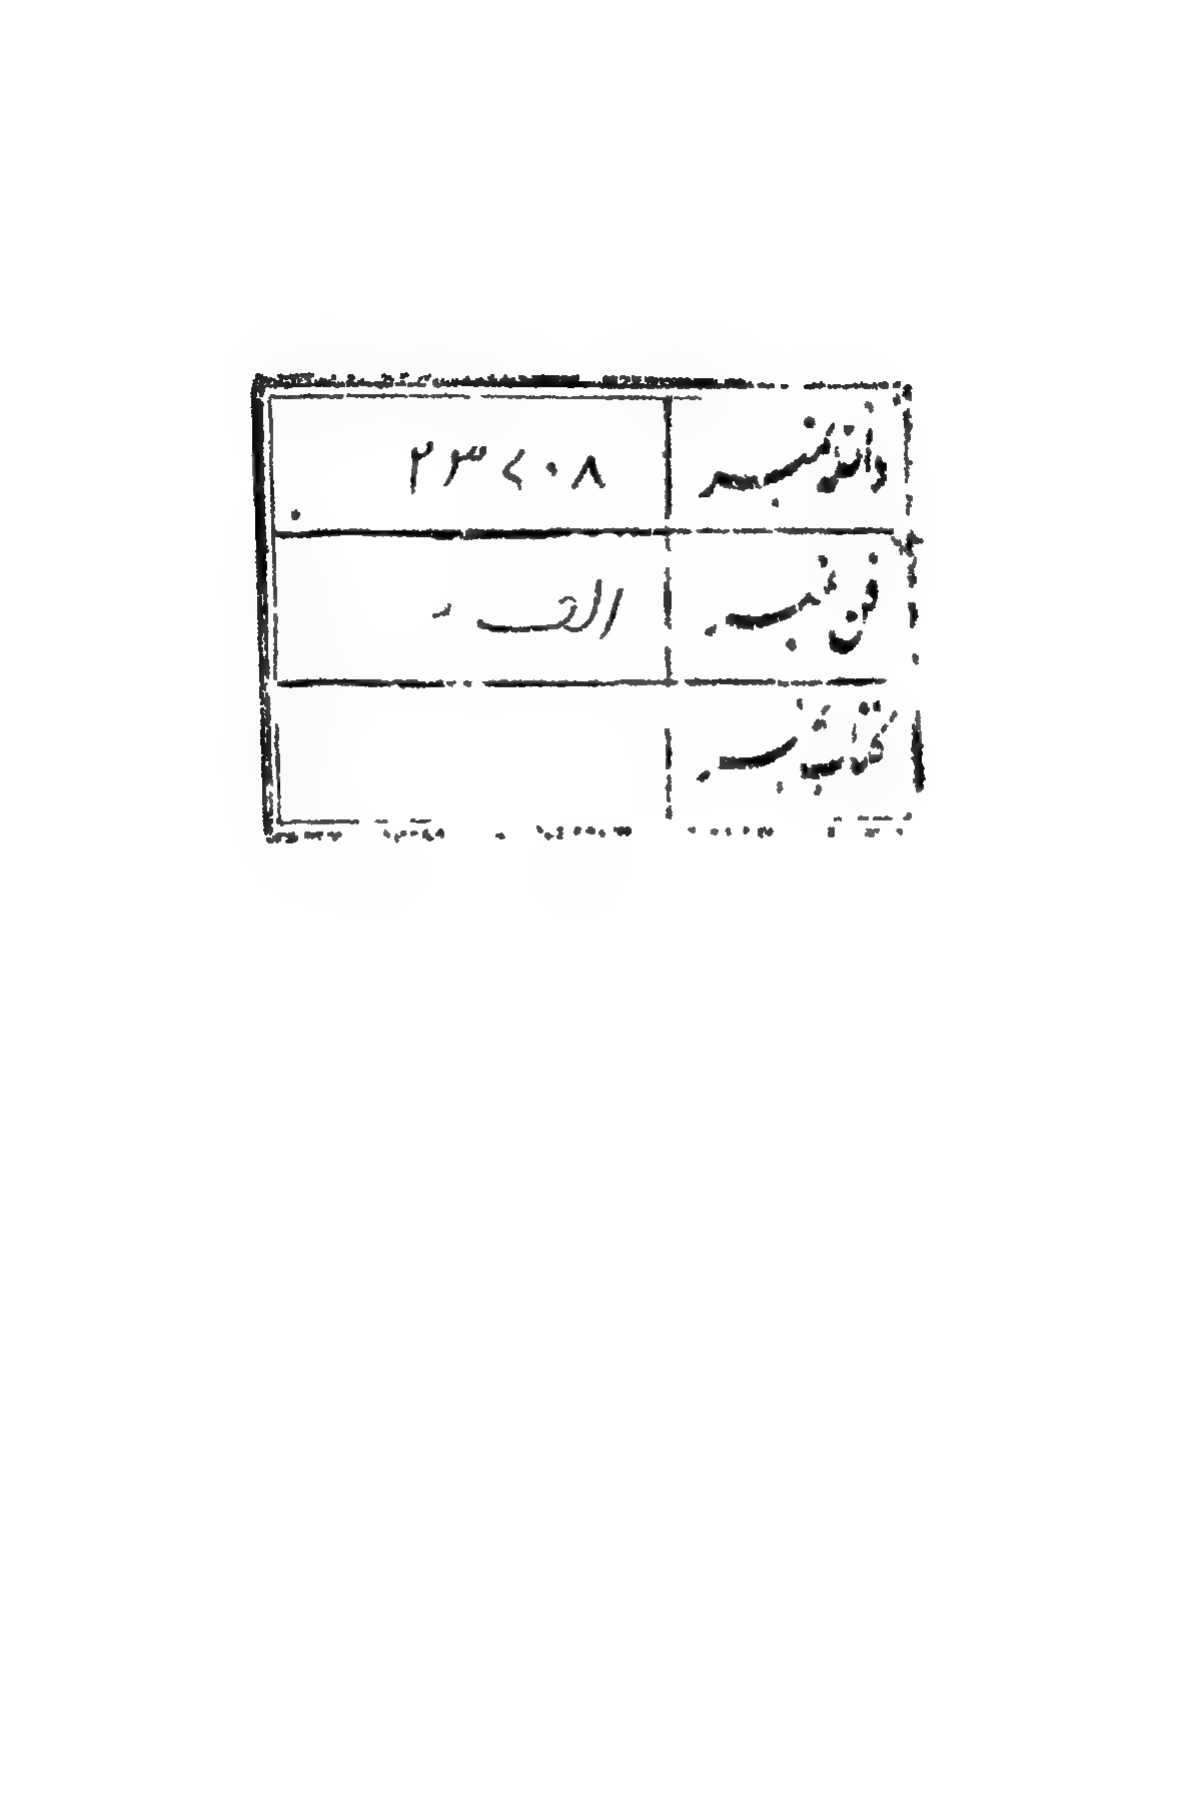 داخلہ نمبر ۲۳۷۰۸
فن نمبر
کتاب نمبر